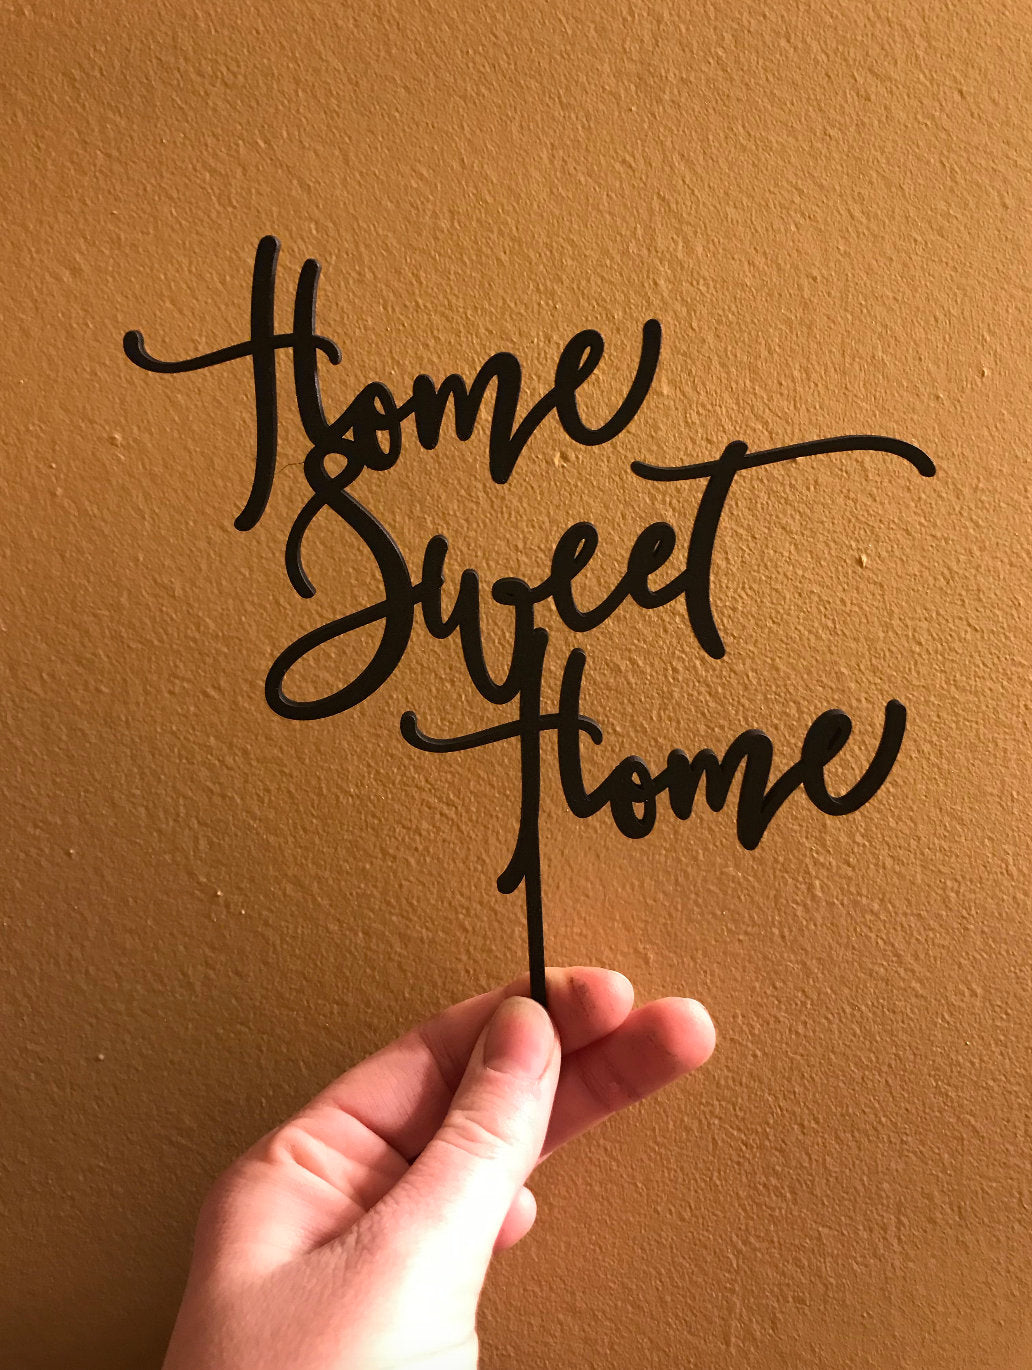 Home
Sweet
Home